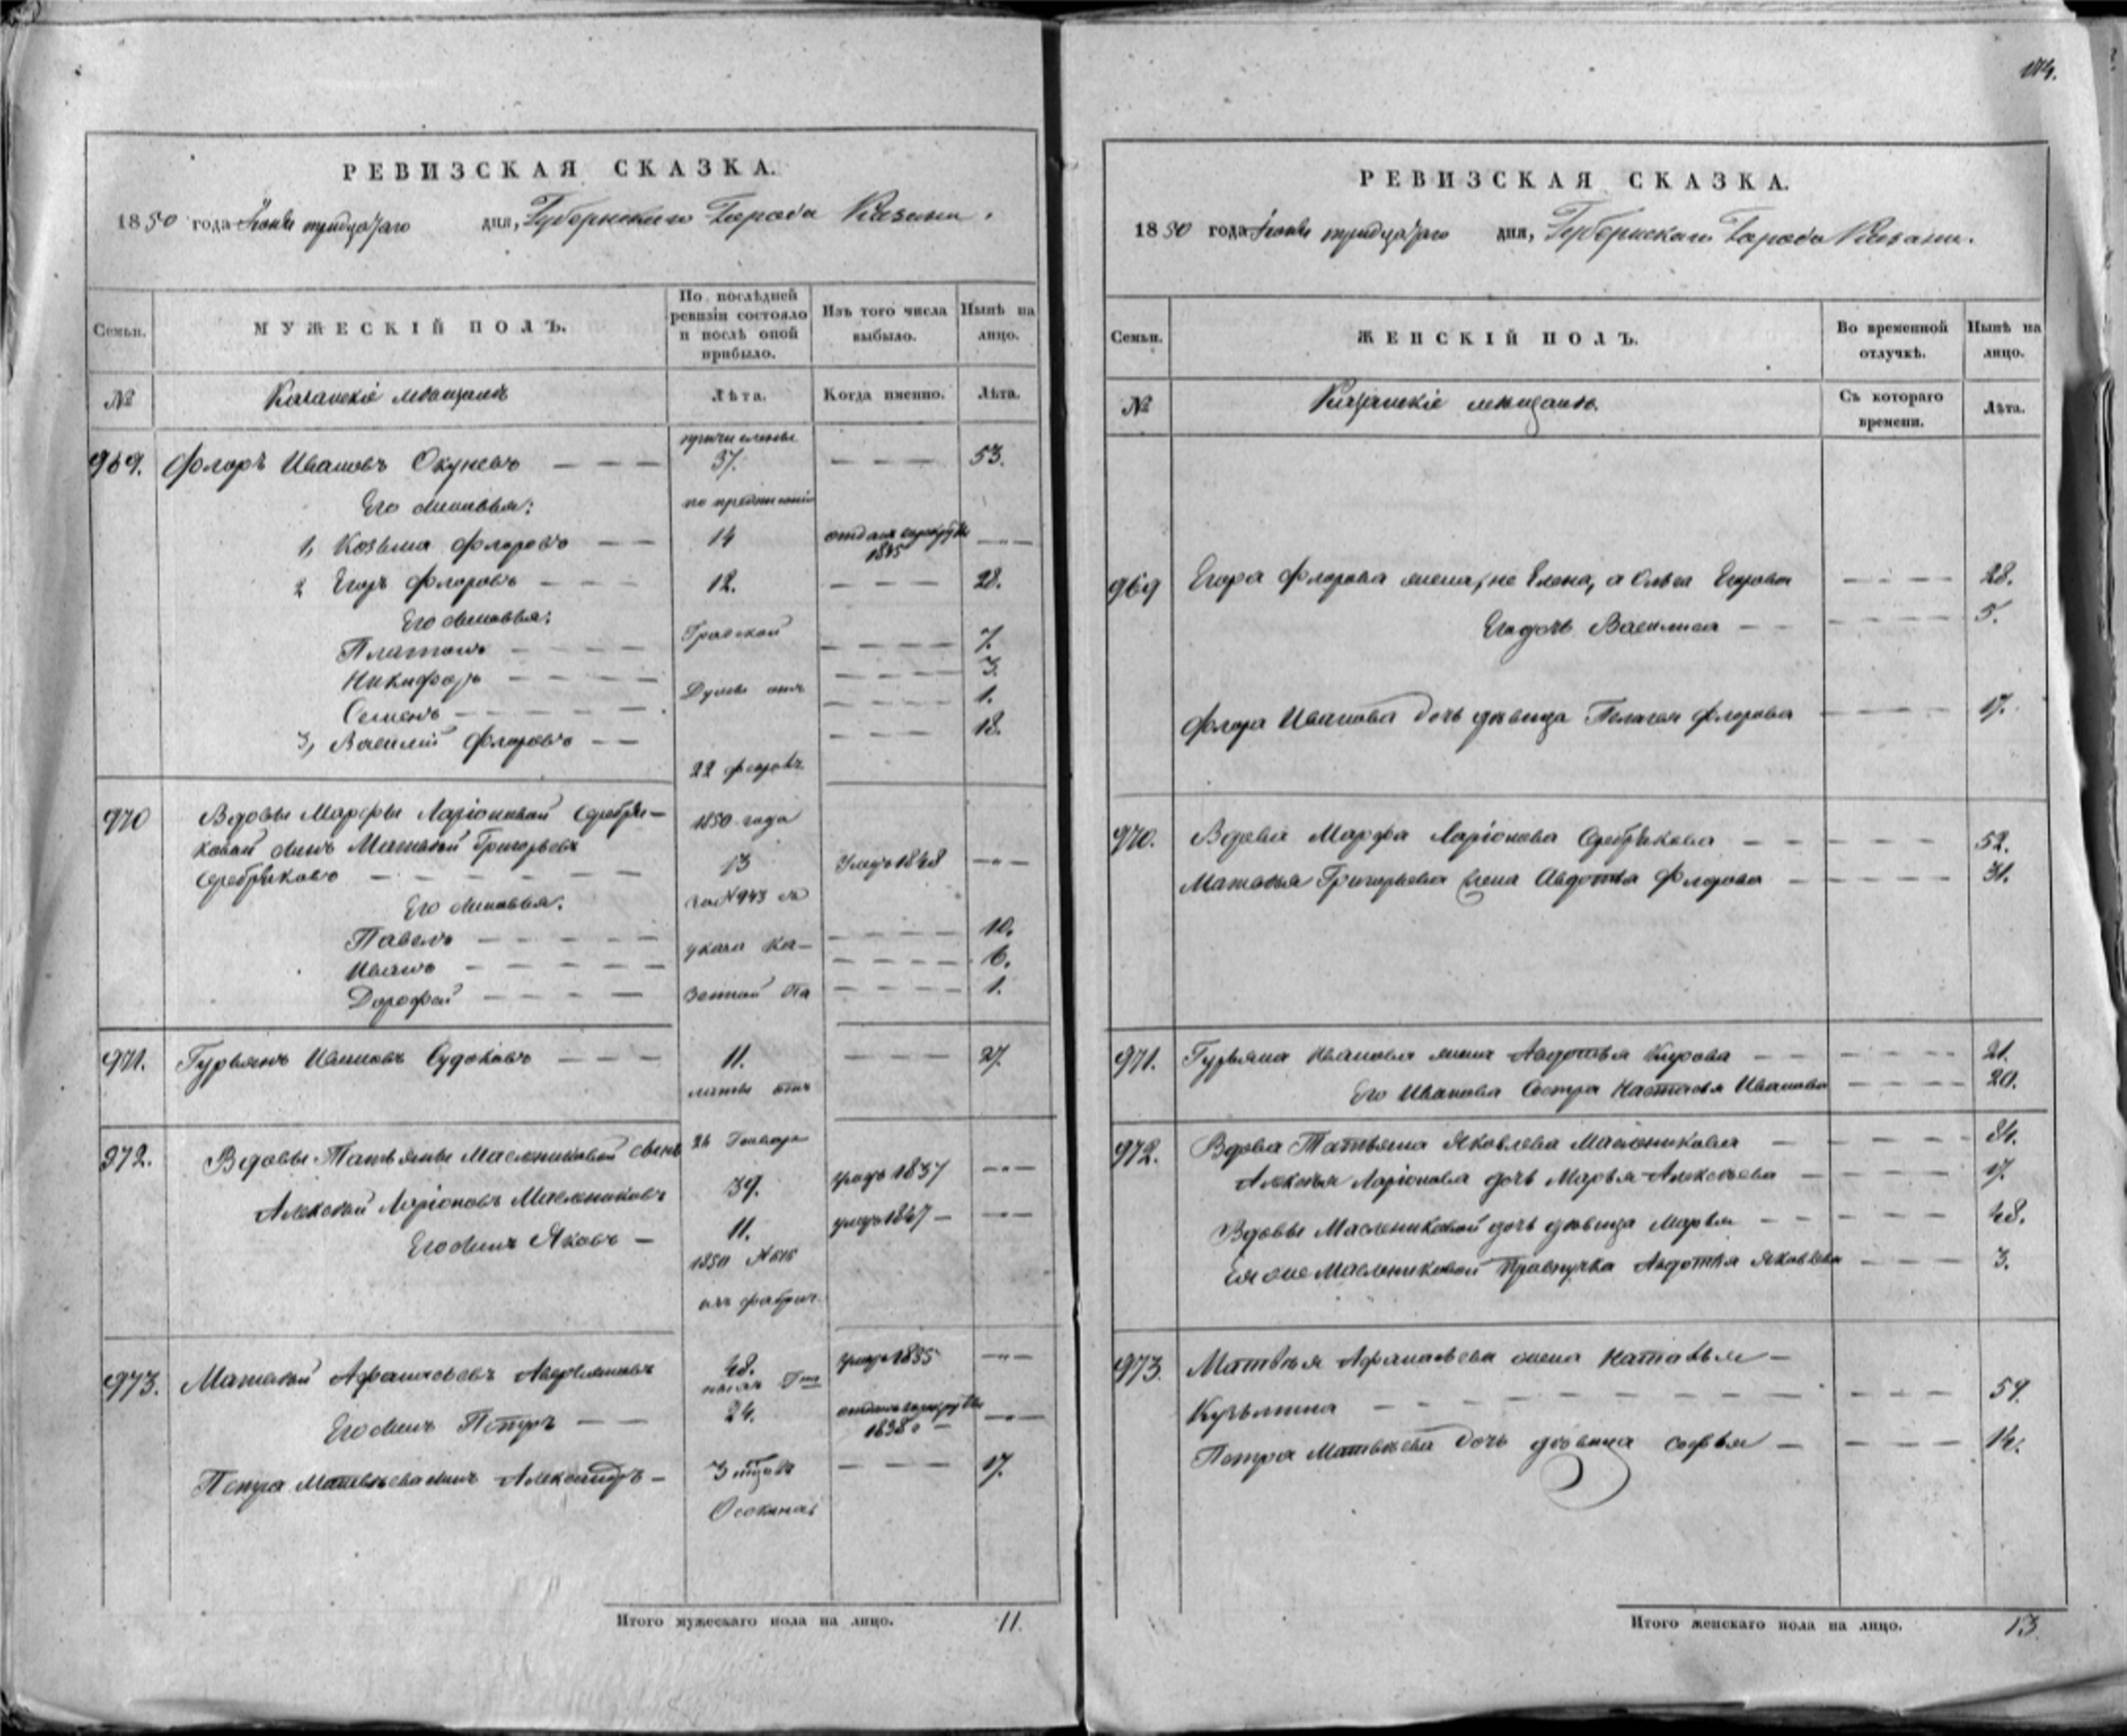 174.
РЕВИЗСКАЯ СКАЗКА.
1850 года Іюня тридцатаго дня, Губернскаго Города Казани.
Семьи. МУЖЕСКІЙ ПОЛЪ. По послѣдней ревизіи состояло и послѣ оной прибыло. Изъ того числа выбыло. Нынѣ на лицо.
№ Казанскіе мѣщане Лѣта. Когда именно. Лѣта.
причислены
969. Флоръ Ивановъ Окуневъ — — — 37. — — — 53.
Его сыновья: по предписанію
1, Козьма Флоровъ — — 14 отданъ въ рекруты 1845 —"—
2 Егоръ Флоровъ — — — 12. — — — 28.
Его сыновья:
Платонъ — — — — Градской — — — — 7.
Никифоръ — — — — — — — — 3.
Семенъ — — — — — Думы отъ — — — — 1.
3, Василій Флоровъ — — — — — 18.
22 февраля
970 Вдовы Марфы Ларіоновой Серебря- 1850 года
ковой сынъ Матвѣй Григорьевъ
Серебряковъ — — — — — 13 Умеръ 1848 —"—
Его сыновья: за № 943 съ
Павелъ — — — — — — — — 10.
указа Ка-
Иванъ — — — — — — — — — 6.
Дорофей — — — — зенной Па — — — — 1.
971. Гурьянъ Ивановъ Судоковъ — — — 11. — — — 27.
латы отъ
972. Вдовы Татьяны Маслениковой сынъ 26 Генваря
Алексѣй Ларіоновъ Маслениковъ 39. умеръ 1837 —"—
Его сынъ Яковъ — 11. умеръ 1847 — —"—
1850 №
изъ фабрич-
973. Матвѣй Афанасьевъ 48. умеръ 1835 —"—
ныхъ Гна
Его сынъ Петръ — — 24. отданъ въ рекруты 1838 — —"—
Петра Матвѣева сынъ Александръ — 3 — — — 17.
Осокина
Итого мужескаго пола на лицо. 11.
РЕВИЗСКАЯ СКАЗКА.
1850 года Іюня тридцатаго дня, Губернскаго Города Казани.
Семьи. ЖЕНСКІЙ ПОЛЪ. Во временной отлучкѣ. Нынѣ на лицо.
№ Казанскіе мѣщане. Съ котораго времени. Лѣта.
969 Егора Флорова жена, не Елена, а Ольга Егорова — — — — 28.
Его дочь Василиса — — — — — — 5.
Флора Иванова дочь дѣвица Пелагея Флорова — — — — 17.
970. Вдова Марфа Ларіонова Серебрякова — — — — — 52.
Матвѣя Григорьева жена Авдотья Флорова — — — — — 31.
971. Гурьяна Иванова жена Авдотья Кирова — — — — — — 21.
Его Иванова Сестра Настасья Иванова — — — — 20.
972. Вдова Татьяна Яковлева Масленикова — — — — — 84.
Алексѣя Ларіонова дочь Марья Алексѣева — — — — — 17.
Вдовы Маслениковой дочь дѣвица Марья — — — — — — 48.
Ея же Маслениковой правнучка Авдотья Яковлева — — — 3.
973. Матвѣя Афанасьева жена Наталья —
Кузьмина — — — — — — — — — — — 59.
Петра Матвѣева дочь дѣвица Софья — — — — — 14.
Итого женскаго пола на лицо. 13